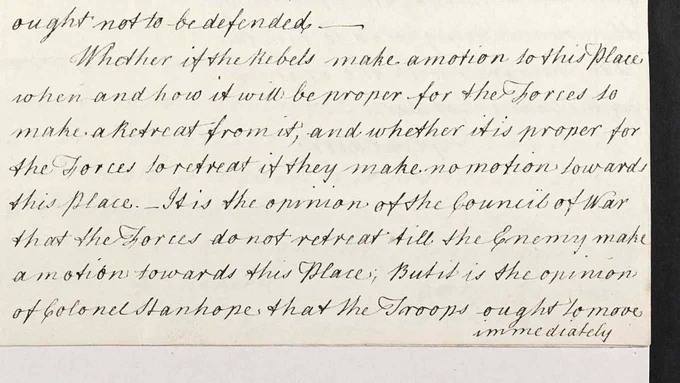 ought not to be defended —
Whether if the Rebels make a motion to this Place
when and how it will be proper for the Forces to
make a Retreat from it, and whether it is proper for
the Forces to retreat if they make no motion towards
this Place. — It is the opinion of the Council of War
that the Forces do not retreat till the Enemy make
a motion towards this Place; But it is the opinion
of Colonel Stanhope that the Troops ought to move
immediately